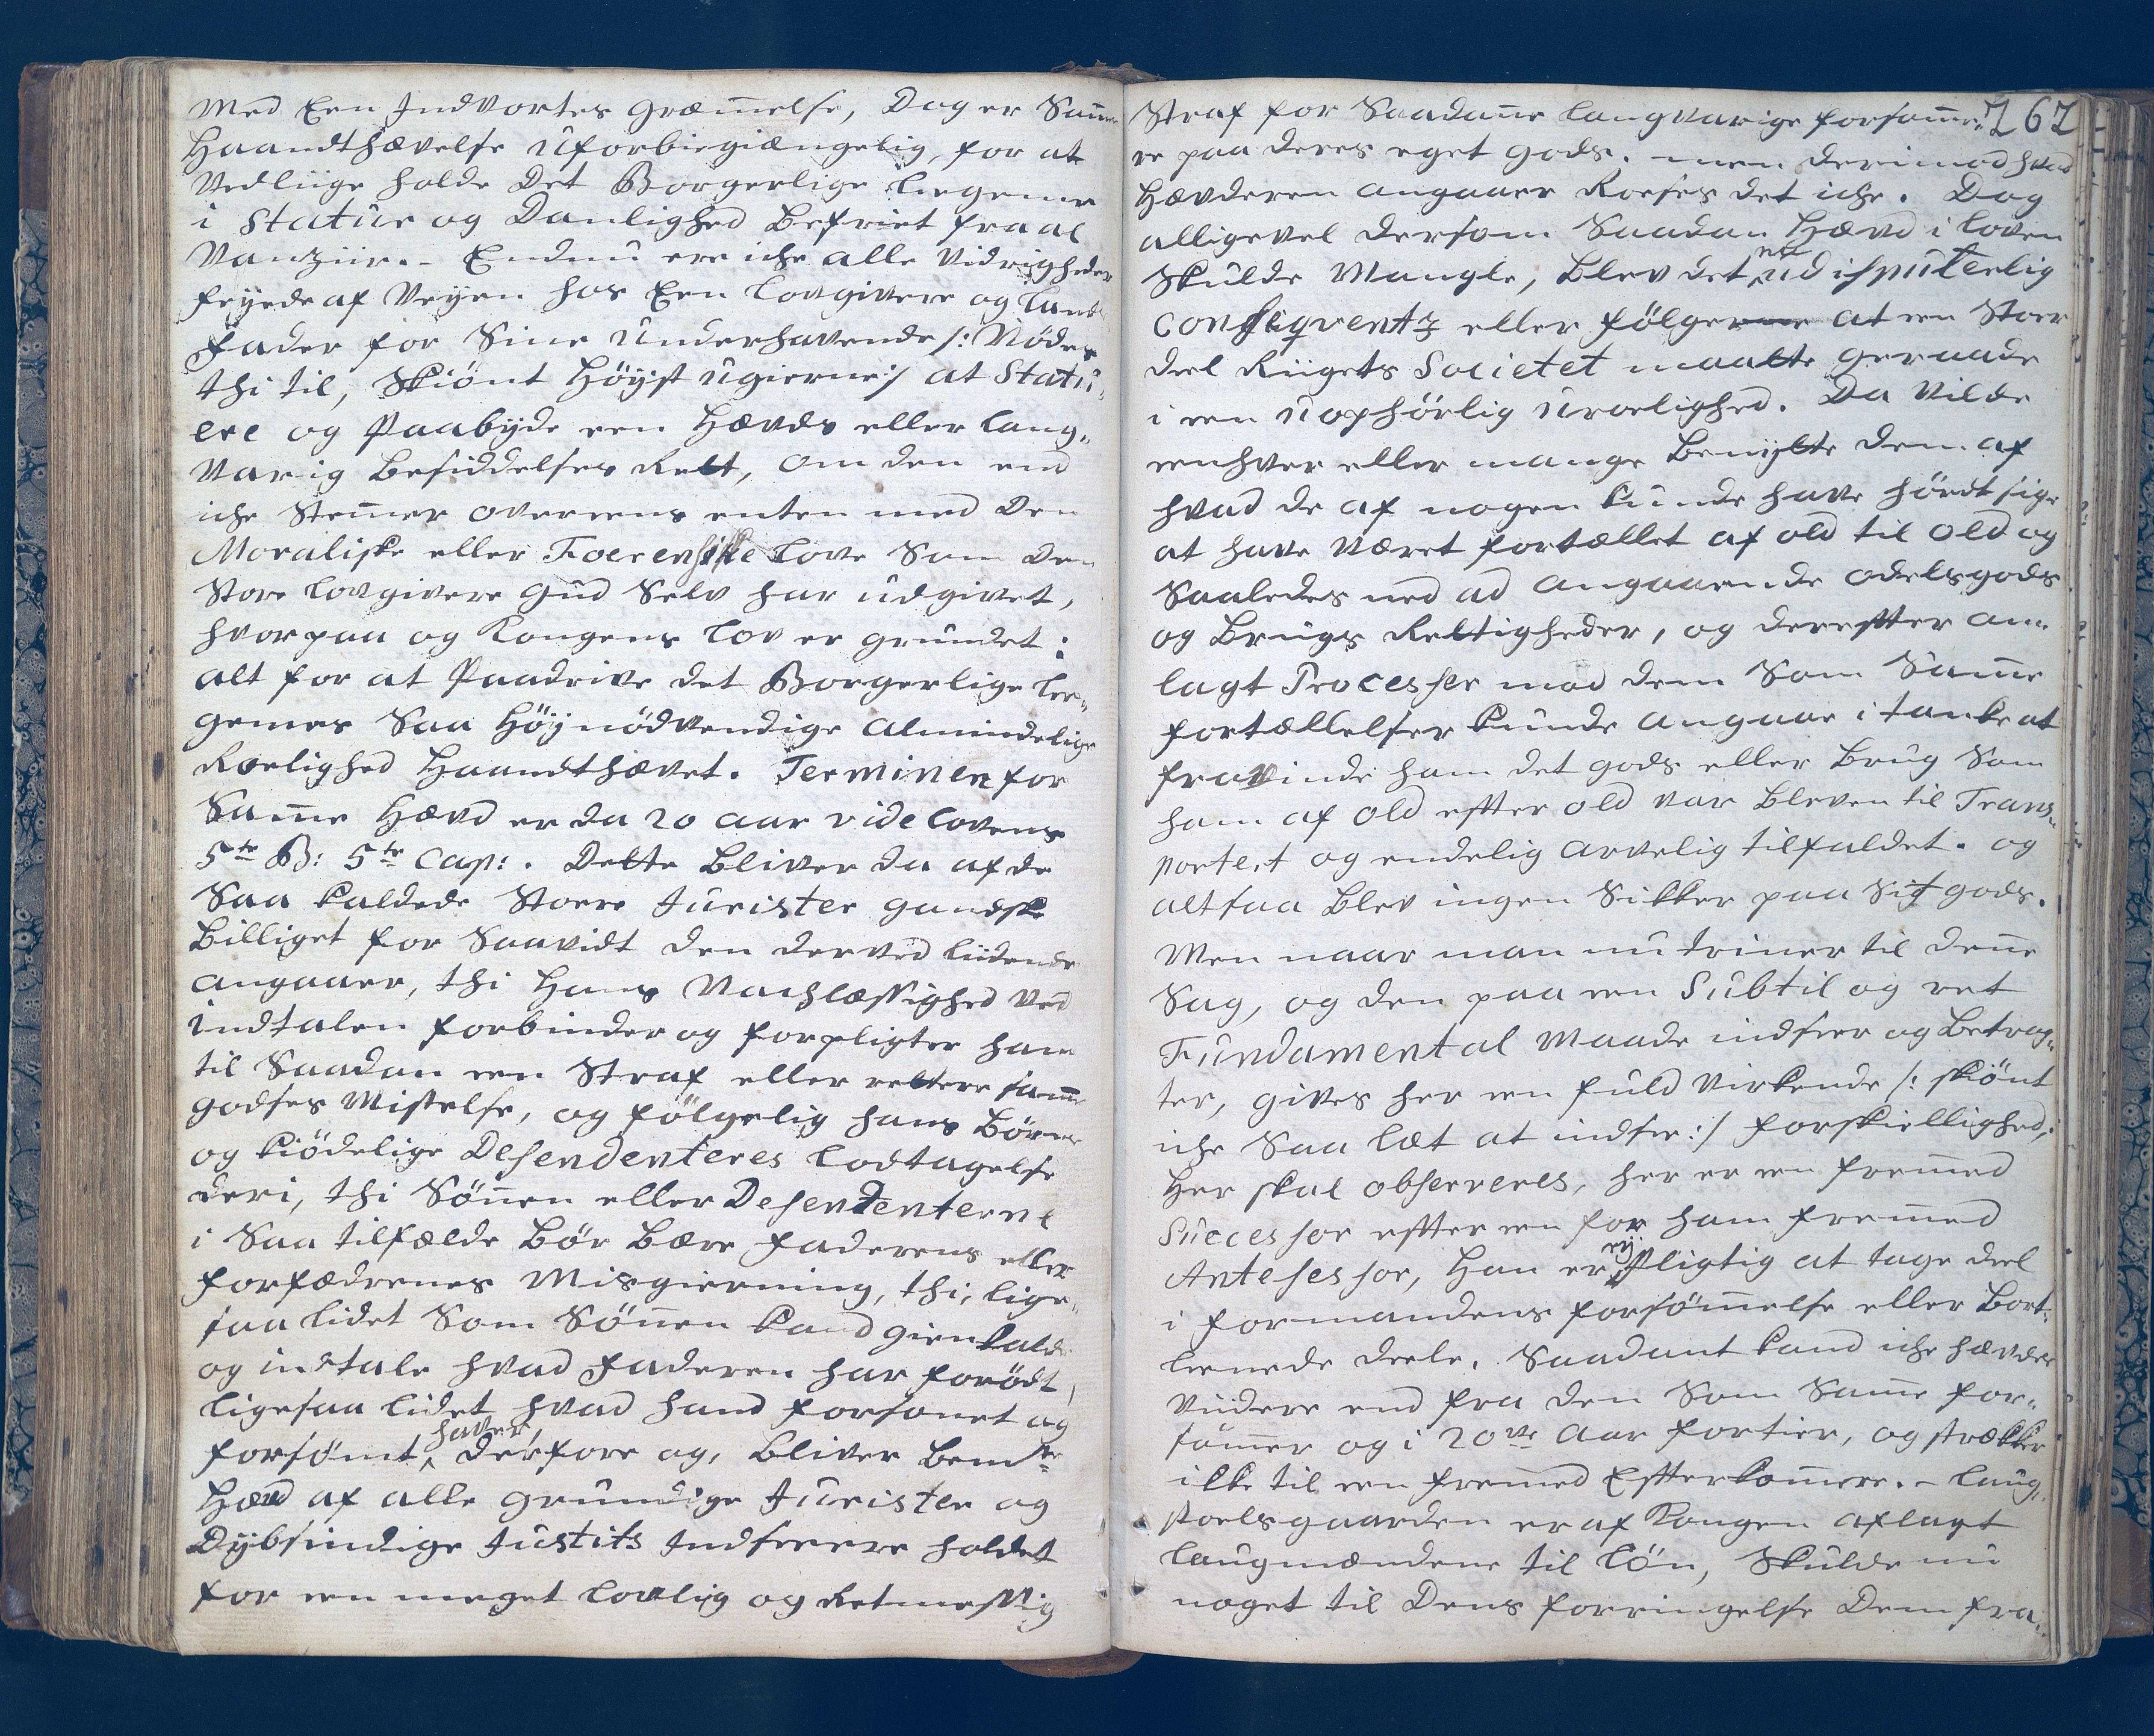 Med Een Indvortes Græmelse, Dog er Samme
Haandthævelse uforbiegiængelig, for at
Vedliige holde Det Borgerlige Legeme
i Statur og Danlighed Befriet fra al
Vanziir. - Endnu ere iche alle Vidrigheder
feyede af Veyen hos Een Lovgivere og Lands
Fader for Sine Underhavende /: Nødes
thi til, Skiönt Höyst ugierne :/ at Statu„
ere og Paabyde een Hævds eller Lang„
varig Besiddelses Rett, om den end
iche Stemer overeens enten med Den
Moraliske eller Foerensiske Love Som Den
Store Lovgivere Gud Selv har udgivet,
hvorpaa og Kongens Lov er grundet:
alt for at Paadrive det Borgerlige Lee„
gemes Saa Höynödvendige Almindelige
Roelighed Haandthævet. Terminen for
Same Hævd er da 20 aar vide Lovens
5te B: 5te Cap: . Dette Bliver da af de
Saa kaldede Stoere Jurister gandske
Billiget for Saavidt den derved Liidende
angaaer, thi Hans Nachlæssighed ved
indtalen forbinder og forpligter ham
til Saadan een Straf eller rettere samme
godses Mistelse, og fölgelig hans Börns
og kiödelige Desendenteres Lodtagelse
deri, thi Sönen eller Desendenterne
i Saa tilfælde Bör Bære Faderens eller
forfædrenes Misgierning, thi, lige„
saa lidet Som Sönnen kand gienkalde
og indtale hvad Faderen har forödt,
Ligesaa lidet hvad hand forsonet og
haver,
forsömt, derfore og, bliver bemte
Hævd af alle grundige Jurister og
Dybsindige Justits Indseere holdet
for een meget Lovlig og Retmessig
262
Straf for Saadanne langvarige forsömme„
re paa deres eget gods. men derimod hvad
Hævderen angaaer Roeses det iche. Dog
alligevel dersom Saadan Hævd i Loven
Skulde Mangle, Blev det udisputerlig
Conseqventz eller fölgerne at een Stoer
deel Riigets Societet maatte geraade
i een uophörlig uroelighed. Da vilde
eenhver eller mange Benytte dem af
hvad de af nogen kunde have hördt sige
at have Været fortællet af old til old og
Saaledes ned ad angaaende odelsgods
og Brugs Rettigheder, og derefter an„
lagt Processer mod dem Som Same
fortællelser kunde angaae i tanke at
fravinde ham det gods eller Brug Som
ham af old efter old var bleven til Trans„
portert og endelig arvelig tilfaldet. og
altsaa Blev ingen Sikker paa Sit gods.
Men naar man nu triner til denne
Sag, og den paa een Subtil og ret
Fundamental Maade indseer og Betrag„
ter, gives her een fuld virkende /: skiönt
iche Saa læt at indsee :/ forskiellighed,
Her skal observeres, her er een fremed
Successor efter een for ham fremed
ey
Antesessor, Han er Pligtig at tage deel
i formandens forsömelse eller Bort„
leenede deele. Saadant kand iche hævdes
viidere end fra den Som Same for„
sömer og i 20ve Aar fortier, og strækker
ikke til een fremed Efterkomere. - Laug„
stoelsgaarden er af Kongen aflagt
Laugmændene til Lön, Skulde nu
noget til Dens forringelse Dem fra„